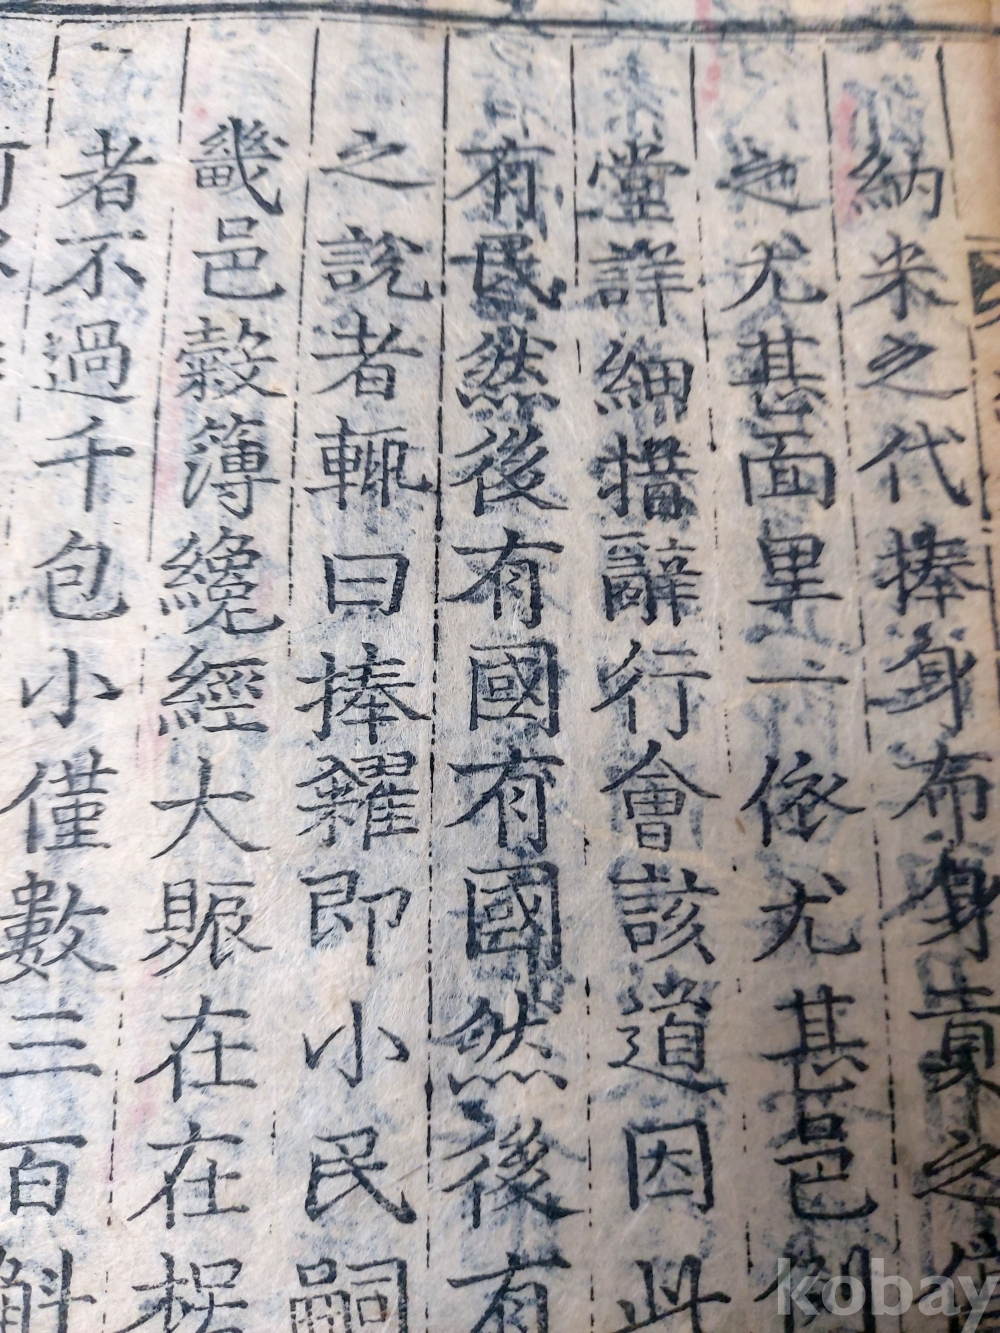 納米之代捧身布身責之
之尤甚面里一依尤甚邑例
堂詳細措辭行會該道因此
有民然後有國有國然後有
之說者輒曰捧糴即小民嗣
畿邑穀簿纔經大賑在在枵
者不過千包小僅數三百斛
kobay